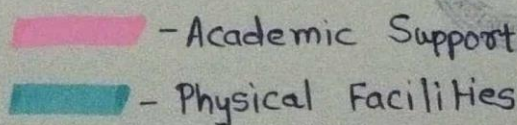 - Academic Support
- Physical Facilities